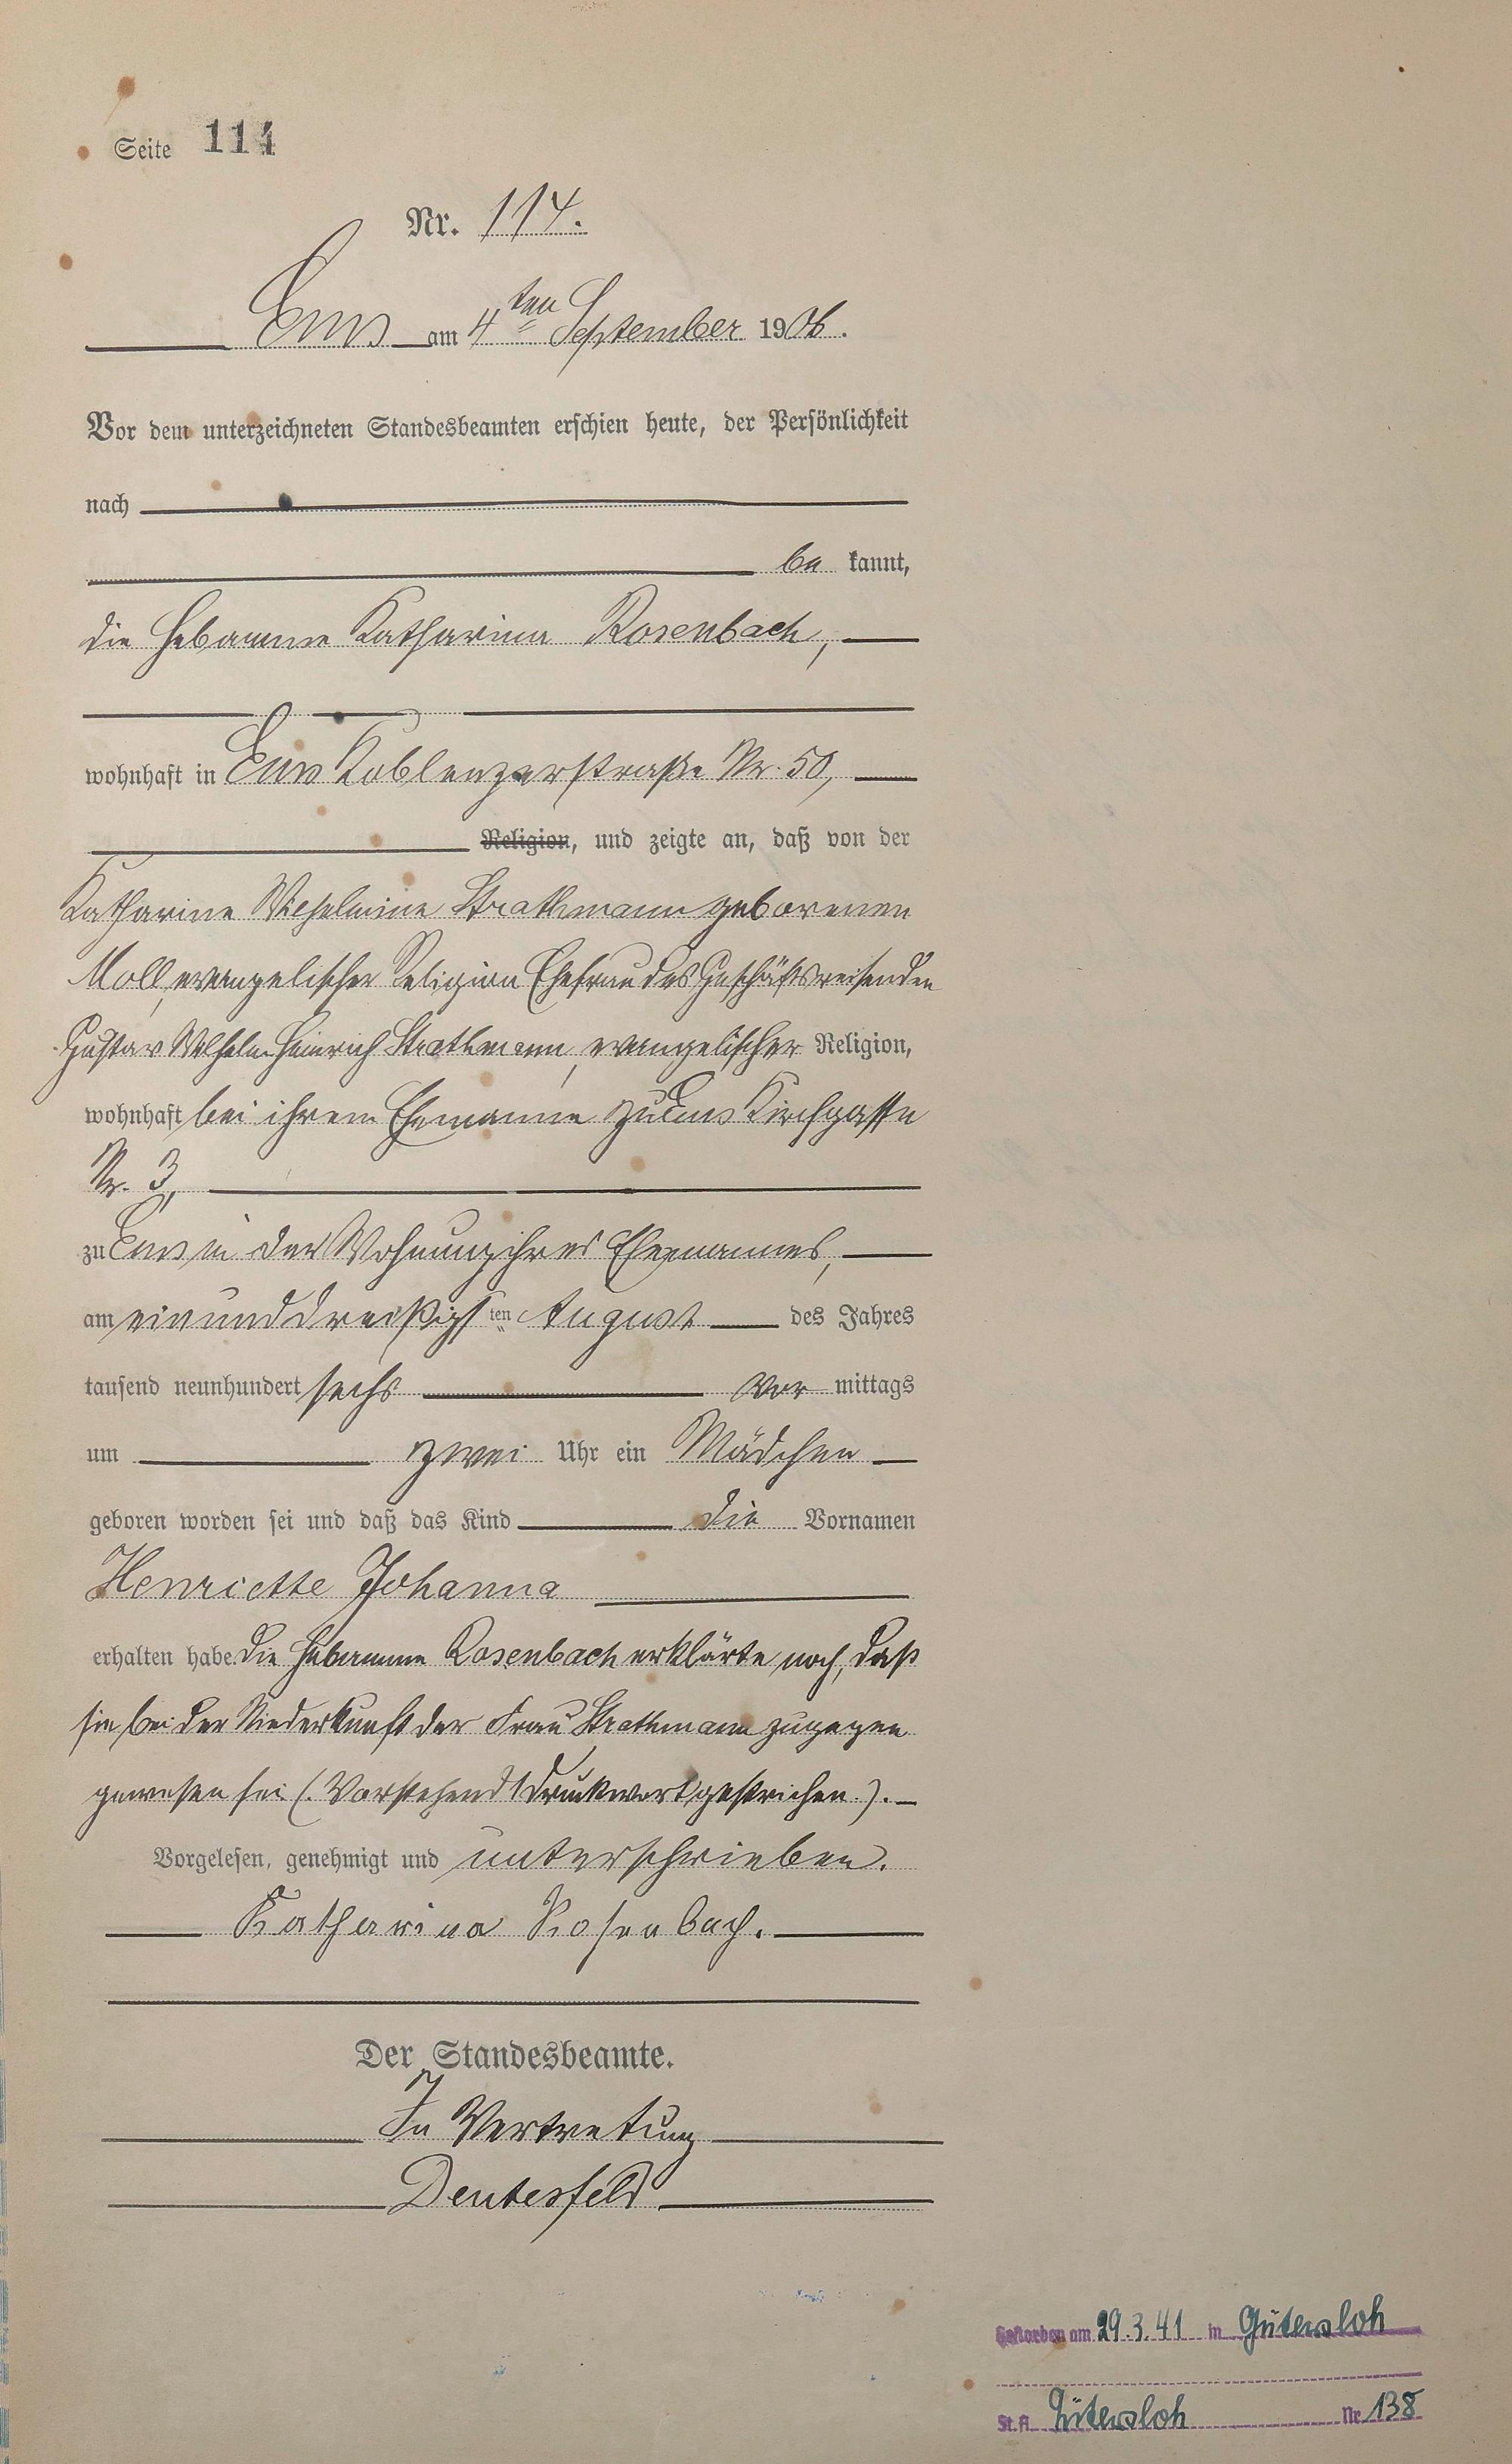 Seite 114
Nr. 114.
Ems am 4ten September 1906.
Vor dem unterzeichneten Standesbeamten erschien heute, der Persönlichkeit
nach
be kannt,
die Hebamme Katharina Rosenbach,
wohnhaft in Ems Koblenzerstraße Nr. 50,
Religion, und zeigte an, daß von der
Katharine Wilhelmine Strathmann geborenen
Moll, evangelischer Religion Ehefrau des Geschäftsreisenden
Gustav Wilhelm Heinrich Strathmann, evangelischer Religion,
wohnhaft bei ihrem Ehemanne zu Ems Kirchgasse
Nr. 3,
zu Ems in der Wohnung ihres Ehemannes,
am einunddreißigsten August des Jahres
tausend neunhundert sechs vor mittags
um zwei Uhr ein Mädchen
geboren worden sei und daß das Kind die Vornamen
Henriette Johanna
erhalten habe. Die Hebamme Rosenbach erklärte noch, daß
sie bei der Niederkunft der Frau Strathmann zugegen
gewesen sei (Vorstehend 1 Druckwort gestrichen.).
Vorgelesen, genehmigt und unterschrieben.
Katharina Rosenbach.
Der Standesbeamte.
In Vertretung
Deutesfeld
Gestorben am 29.3.41 in Gütersloh
St.A. Gütersloh Nr 138